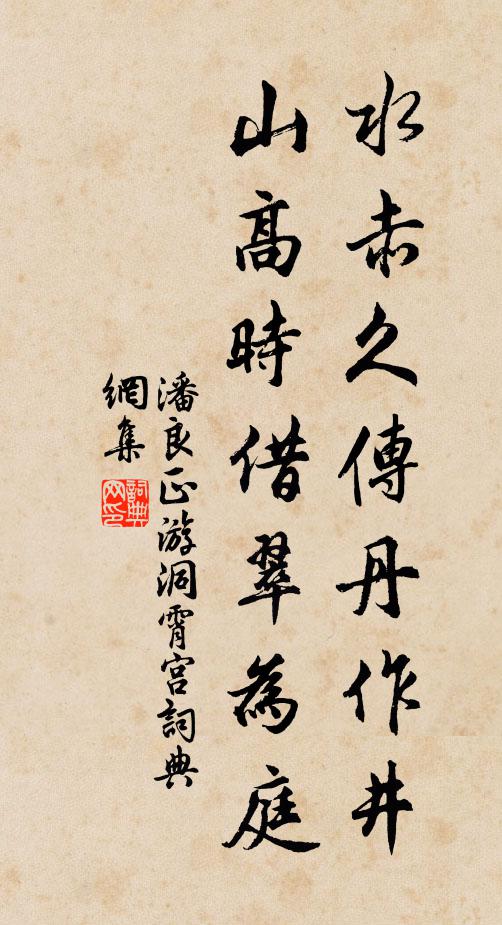 水赤久傳丹作井
山高時借翠為庭
潘良正游洞霄宮詞典
網集
詞典網印